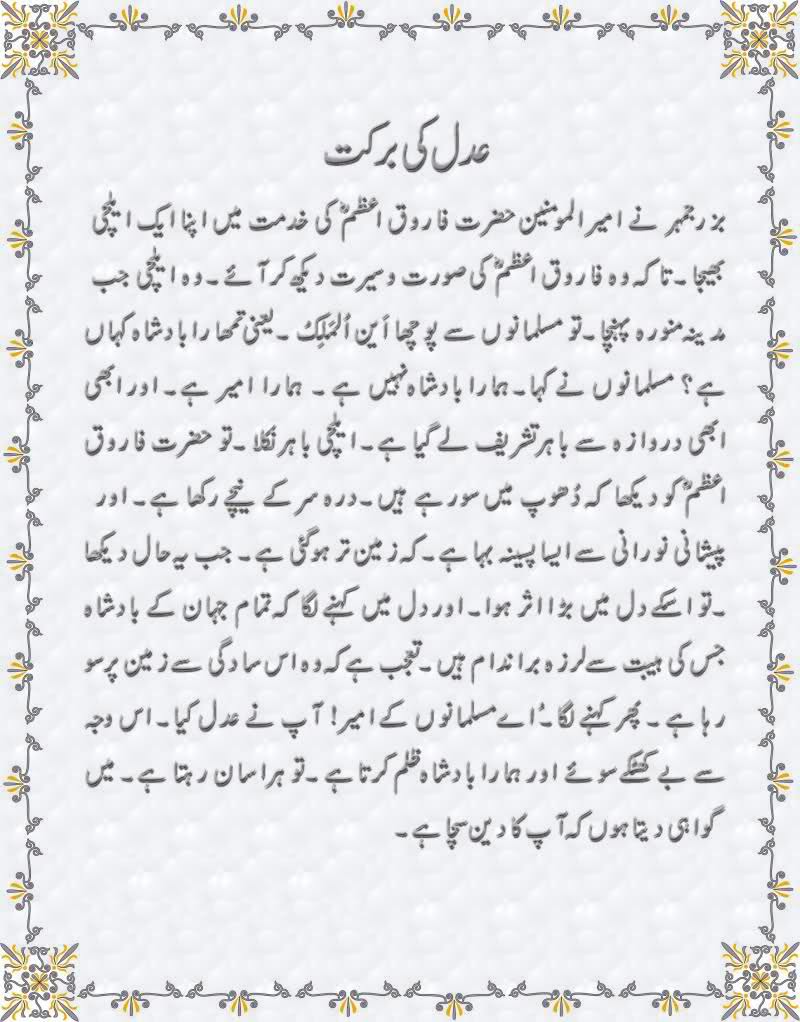 عدل کی برکت
بزرجمہر نے امیر المومنین حضرت فاروق اعظمؓ کی خدمت میں اپنا ایک ایلچی
بھیجا ۔تا کہ وہ فاروق اعظمؓ کی صورت و سیرت دیکھ کر آئے ۔ وہ ایلچی جب
مدینہ منورہ پہنچا۔ تو مسلمانوں سے پوچھا اَین اُلمَلِکُ ۔ یعنی تمھارا بادشاہ کہاں
ہے؟ مسلمانوں نے کہا۔ ہمارا بادشاہ نہیں ہے ۔ ہمارا امیر ہے۔ اور ابھی
ابھی دروازہ سے باہر تشریف لے گیا ہے۔ ایلچی باہر نکلا ۔ تو حضرت فاروق
اعظمؓ کو دیکھا کہ دُھوپ میں سو رہے ہیں۔ درہ سر کے نیچے رکھا ہے۔ اور
پیشانی نورانی سے ایسا پسینہ بہا ہے ۔ کہ زمین تر ہو گئی ہے ۔ جب یہ حال دیکھا
۔تو اسکے دل میں بڑا اثر ہوا۔ اور دل میں کہنے لگا کہ تمام جہان کے بادشاہ
جس کی ہیبت سے لرزہ بر اندام ہیں ۔ تعجب ہے کہ وہ اس سادگی سے زمین پر سو
رہا ہے ۔ پھر کہنے لگا۔ُ اے مسلمانوں کے امیر! آپ نے عدل کیا ۔ اس وجہ
سے بے کھٹکے سوئے اور ہمارا بادشاہ ظلم کرتا ہے ۔تو ہراسان رہتا ہے ۔ میں
گواہی دیتا ہوں کہ آپ کا دین سچا ہے ۔